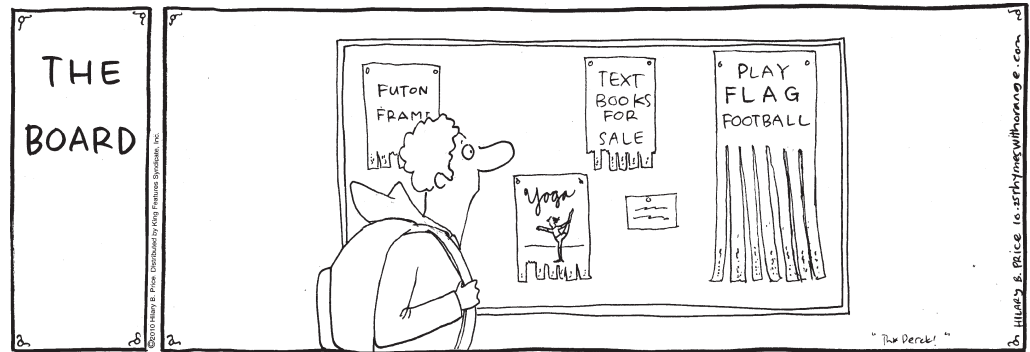 THE
BOARD
©2010 Hilary B. Price Distributed by King Features Syndicate, Inc.
FUTON
FRAME
TEXT
BOOKS
FOR
SALE
Yoga
PLAY
FLAG
FOOTBALL
HILARY B. PRICE 10.25 rhymeswithorange.com
"Thx Derek!"